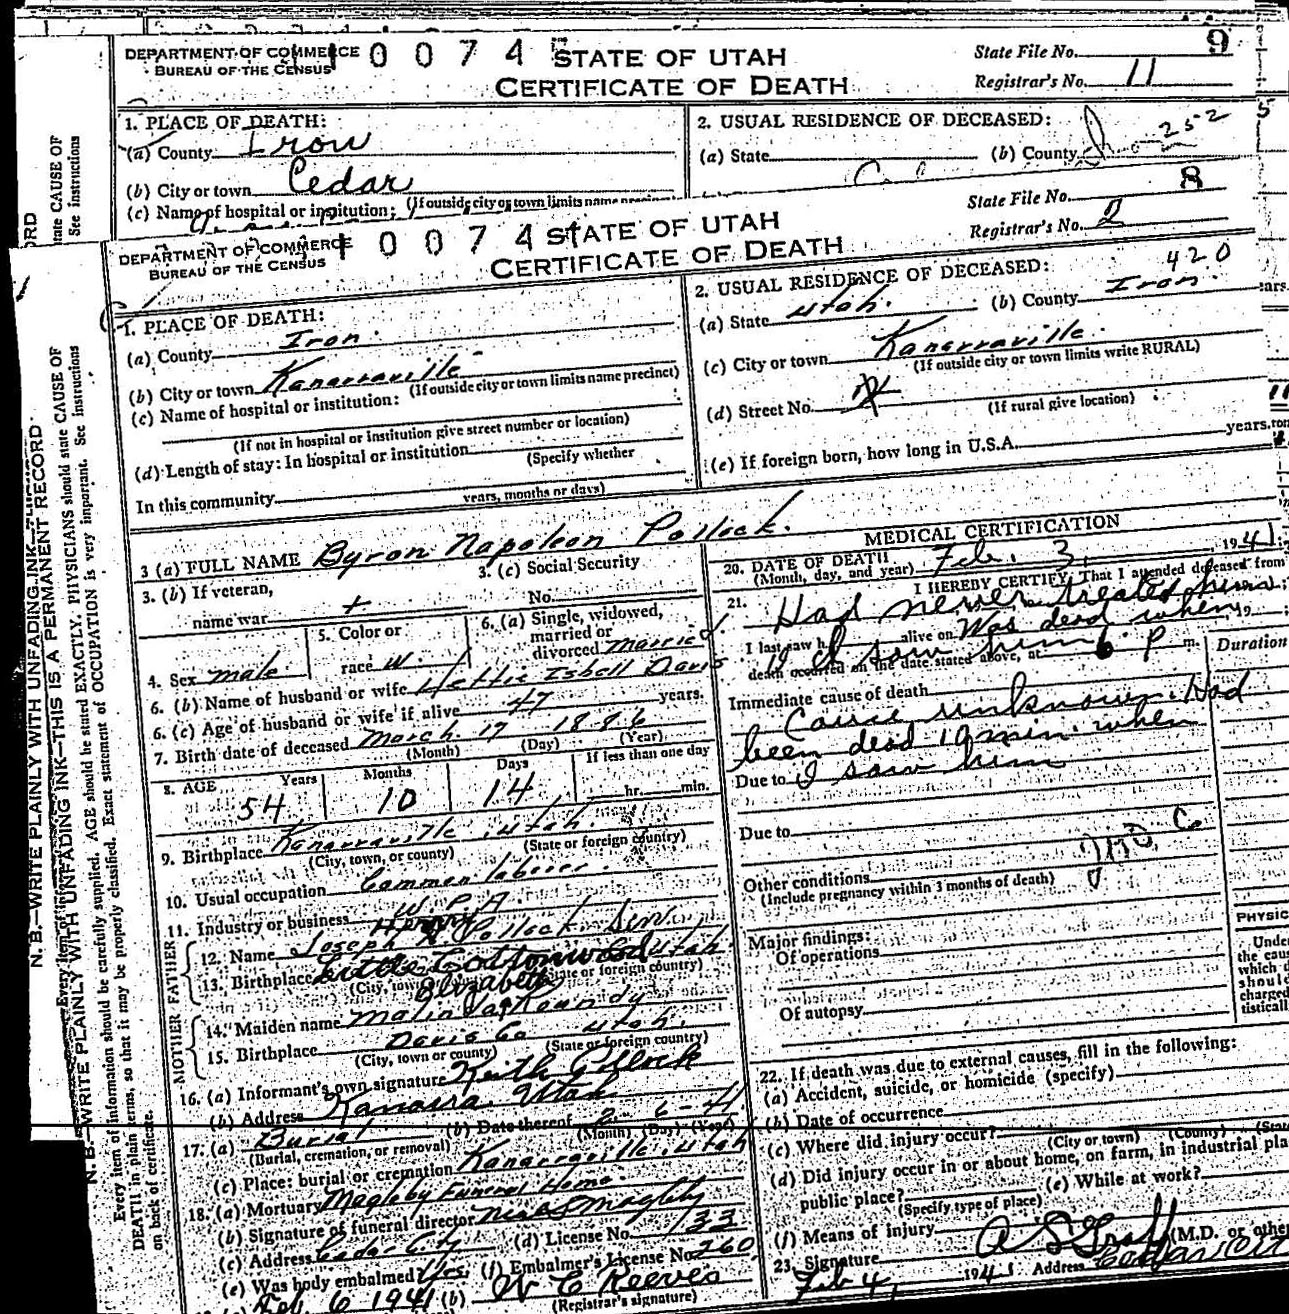 DEPARTMENT OF COMMERCE
BUREAU OF THE CENSUS
0 0 7 4
STATE OF UTAH
CERTIFICATE OF DEATH
State File No. 9
Registrar's No. 11
1. PLACE OF DEATH:
(a) County Iron
(b) City or town Cedar
(c) Name of hospital or institution: (If outside city or town limits name precinct)
2. USUAL RESIDENCE OF DECEASED:
252
(a) State (b) County
DEPARTMENT OF COMMERCE
BUREAU OF THE CENSUS
0 0 7 4
STATE OF UTAH
CERTIFICATE OF DEATH
State File No. 8
Registrar's No. 2
1. PLACE OF DEATH:
(a) County Iron.
(b) City or town Kanarraville
(If outside city or town limits name precinct)
(c) Name of hospital or institution:
(If not in hospital or institution give street number or location)
(d) Length of stay: In hospital or institution
(Specify whether
In this community
years, months or days)
2. USUAL RESIDENCE OF DECEASED:
420
(a) State Utah. (b) County Iron.
(c) City or town Kanarraville.
(If outside city or town limits write RURAL)
(d) Street No.
(If rural give location)
(e) If foreign born, how long in U.S.A. years.
3 (a) FULL NAME Byron Napoleon Pollock.
3. (b) If veteran,
name war
3. (c) Social Security
No.
4. Sex male
5. Color or
race W.
6. (a) Single, widowed,
married or
divorced married.
6. (b) Name of husband or wife Hettie Isbell Davis
6. (c) Age of husband or wife if alive 47 years.
7. Birth date of deceased March 17 1886
(Month) (Day) (Year)
8. AGE Years Months Days If less than one day
54 10 14 hr. min.
9. Birthplace Kanarraville, Utah.
(City, town, or county) (State or foreign country)
10. Usual occupation Common laborer.
11. Industry or business W. P. A.
FATHER
12. Name Joseph Pollock Senr.
13. Birthplace Little Cottonwood Utah.
(City, town (State or foreign country)
MOTHER
Elizabeth
14. Maiden name Malinda Koundy
15. Birthplace Davis Co Utah.
(City, town or county) (State or foreign country)
16. (a) Informant's own signature Keith Pollock
(b) Address Kanarra, Utah
17. (a) Burial (b) Date thereof 2-6-41
(Burial, cremation, or removal) (Month) (Day) (Year)
(c) Place: burial or cremation Kanarraville, Utah
18. (a) Mortuary Magleby Funeral Home
(b) Signature of funeral director Magleby
(c) Address Cedar City (d) License No. 133
(e) Was body embalmed? Yes. (f) Embalmer's License No. 260
Feb. 6 1941 (b) W C Reeves
(Registrar's signature)
MEDICAL CERTIFICATION
20. DATE OF DEATH Feb. 3, 1941;
(Month, day, and year)
21. I HEREBY CERTIFY, That I attended deceased from
Had never treated him
I last saw h alive on Was dead when 19 ;
I saw him
death occurred on the date stated above, at 6 P m.
Duration
Immediate cause of death
Cause unknown. Had
been dead 10 min. when
Due to I saw him
Due to
Other conditions
(Include pregnancy within 3 months of death)
Major findings:
Of operations
Of autopsy
PHYSIC
Unde
the cau
which d
should
charged
tisticall
22. If death was due to external causes, fill in the following:
(a) Accident, suicide, or homicide (specify)
(b) Date of occurrence
(c) Where did injury occur?
(City or town) (County) (State
(d) Did injury occur in or about home, on farm, in industrial pla
public place? (e) While at work?
(Specify type of place)
(f) Means of injury
23. Signature A S Graff (M.D. or othe
Feb 4, 1941 Address Cedar Cit
N. B.—WRITE PLAINLY WITH UNFADING INK—THIS IS A PERMANENT RECORD
Every item of information should be carefully supplied. AGE should be stated EXACTLY. PHYSICIANS should state CAUSE OF
DEATH in plain terms, so that it may be properly classified. Exact statement of OCCUPATION is very important. See instructions
on back of certificate.